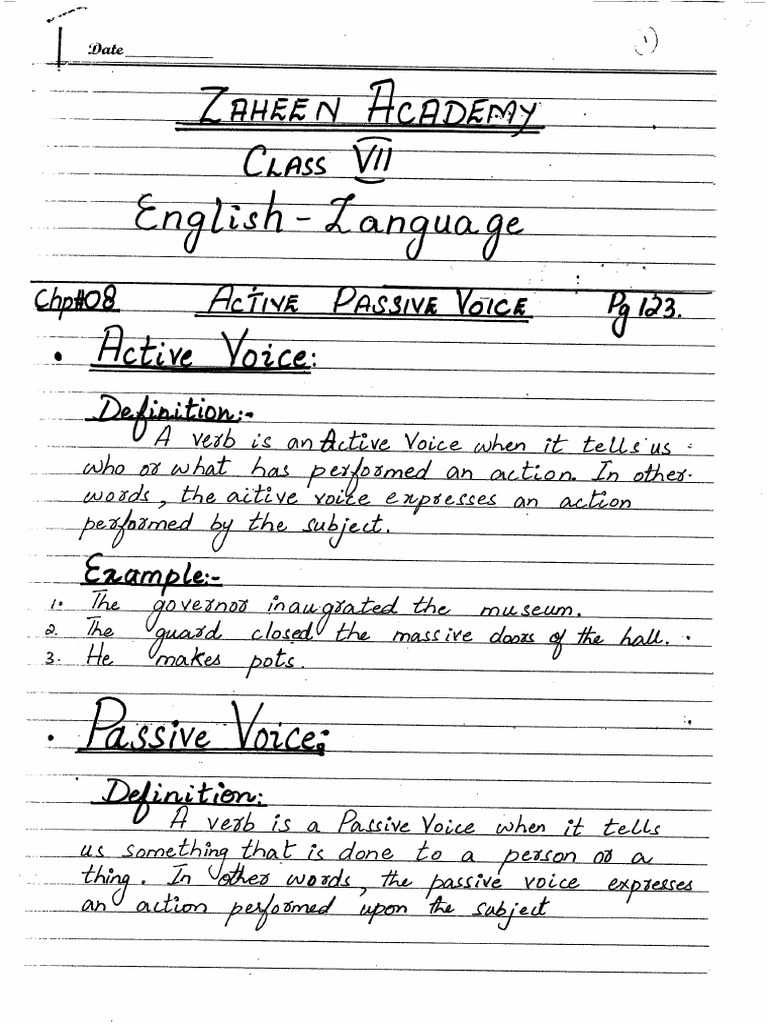 Date
(1)
ZAHEEN ACADEMY
CLASS VII
English - Language
Chp#08 ACTIVE PASSIVE VOICE Pg 123.
• Active Voice:
Definition:-
A verb is an Active Voice when it tells us
who or what has performed an action. In other
words, the aitive voice expresses an action
performed by the subject.
Example:-
1. The governor inaugrated the museum.
2. The guard closed the massive doors of the hall.
3. He makes pots.
• Passive Voice:
Definition:
A verb is a Passive Voice when it tells
us something that is done to a person or a
thing. In other words, the passive voice expresses
an action performed upon the subject